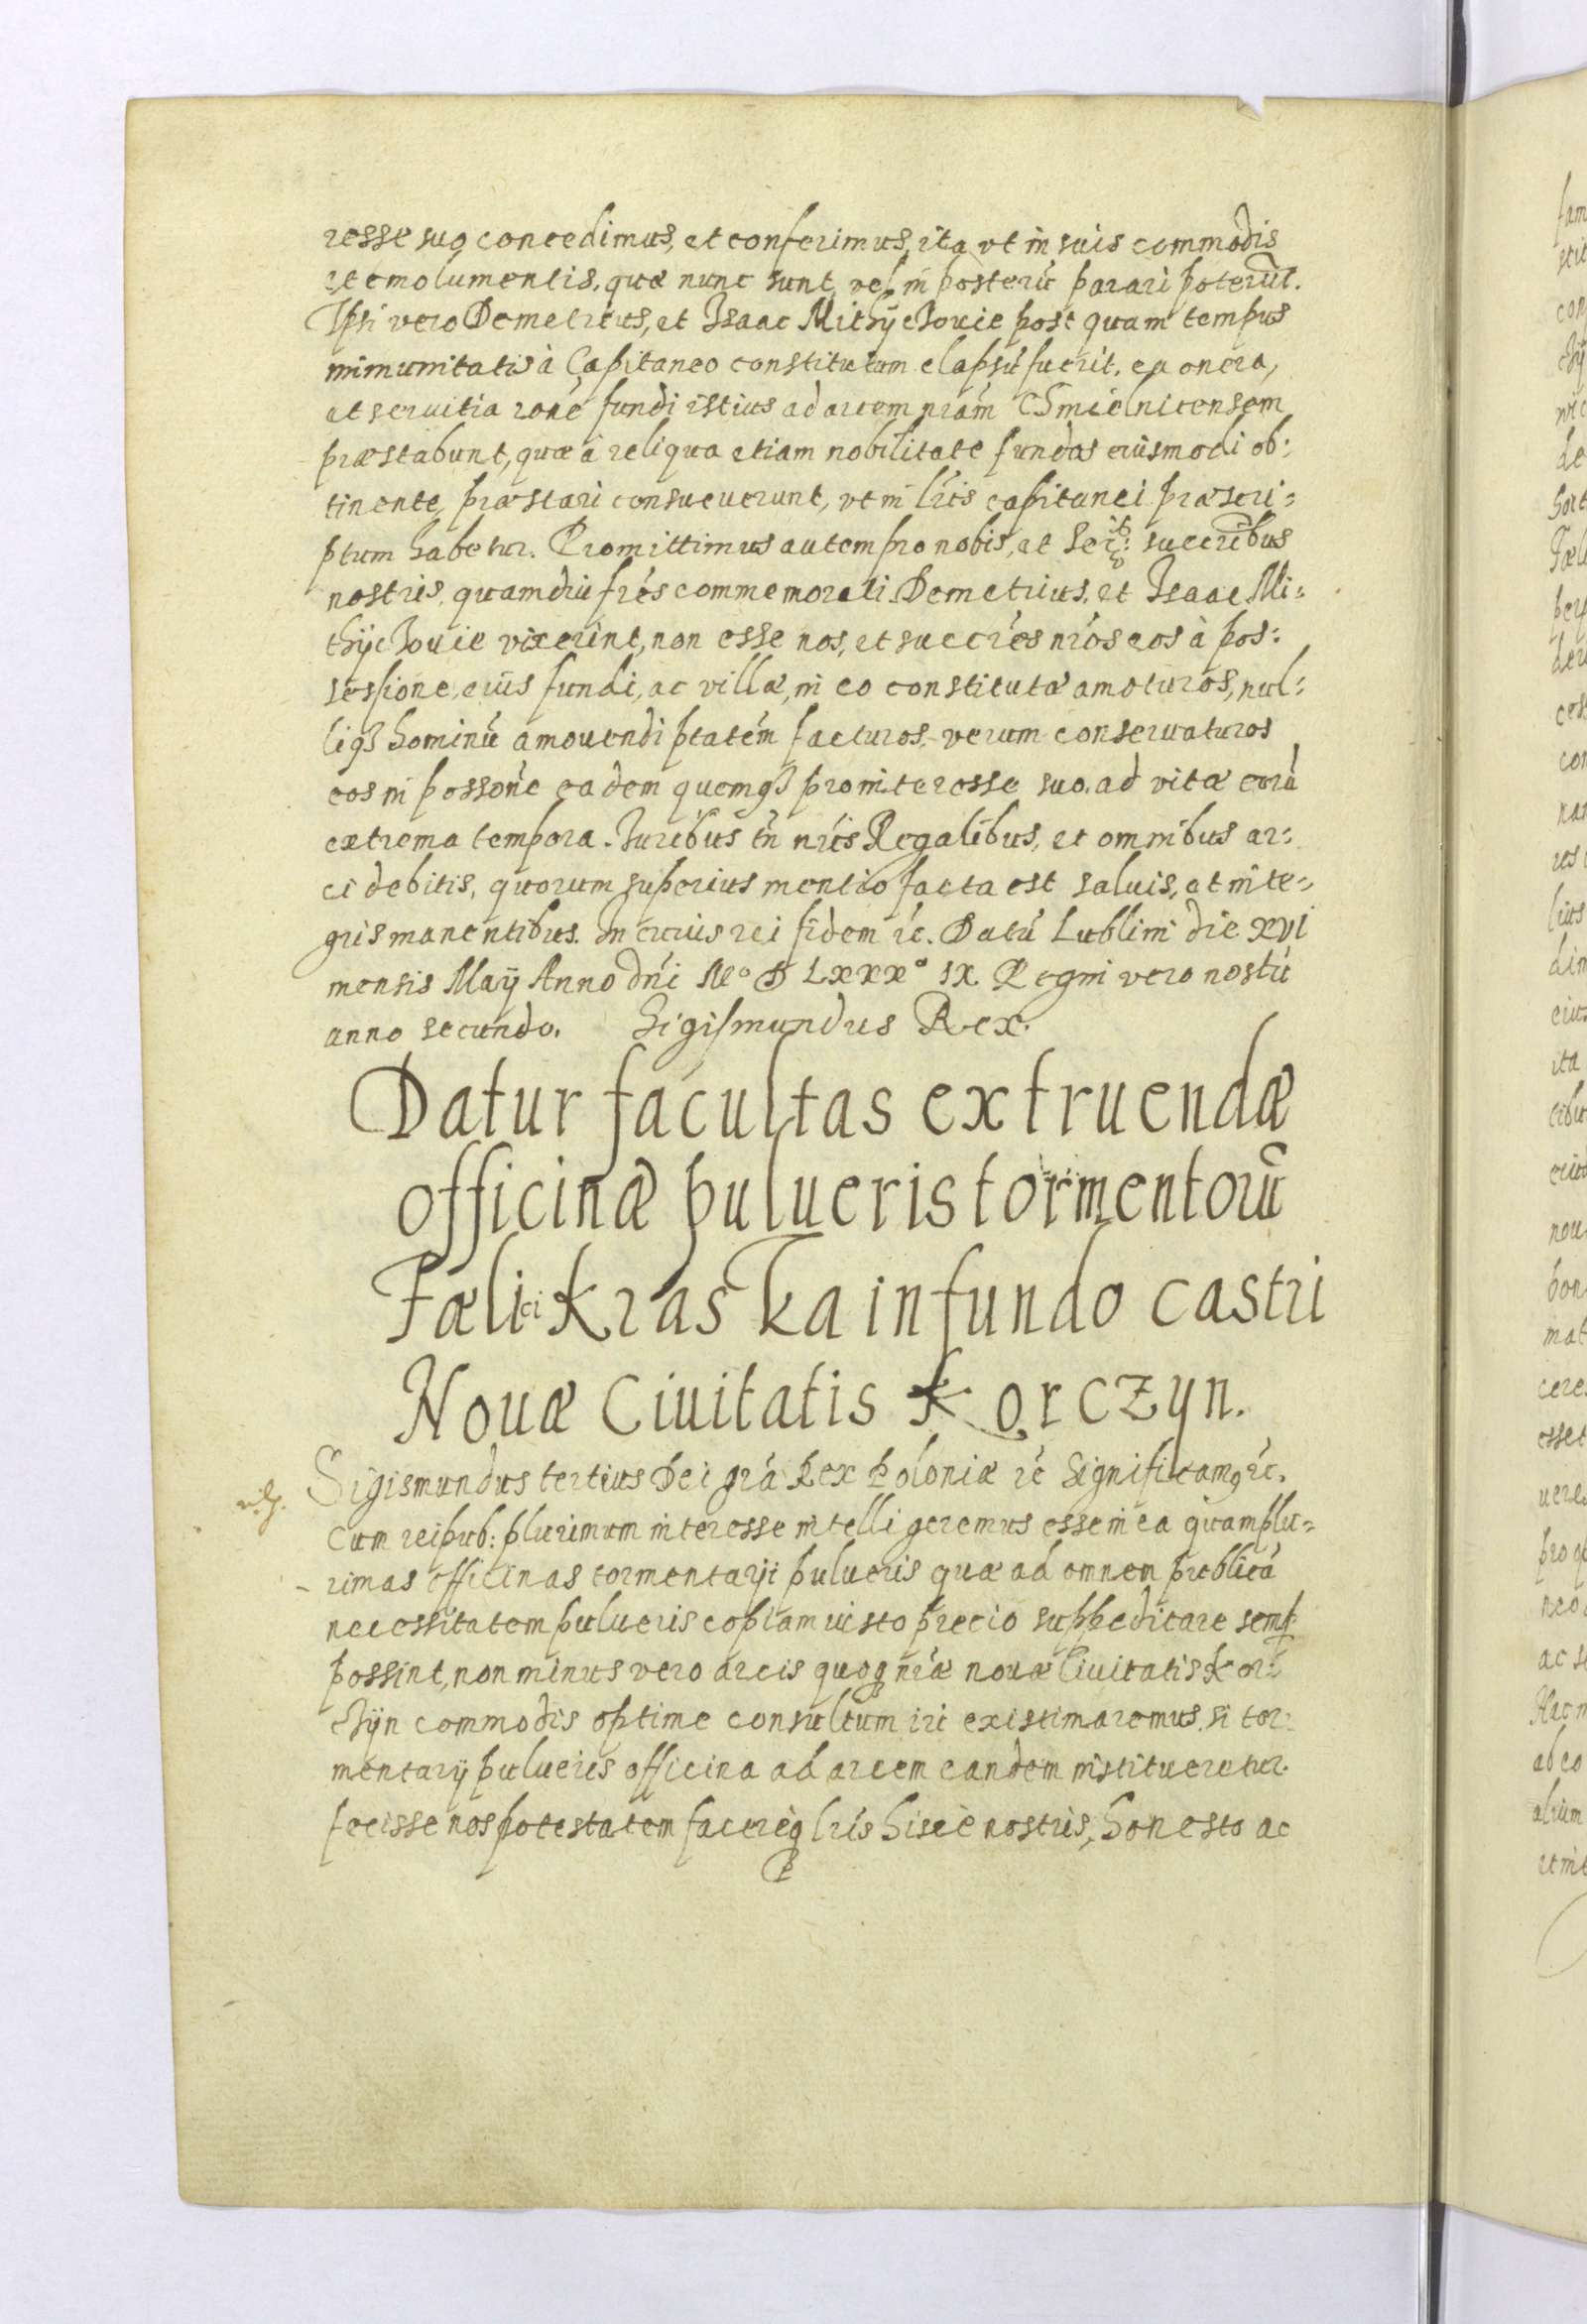 resse suo concedimus, et conferimus, ita vt in suis commodis
et emolumentis, quæ nunc sunt, vel in posterū parari poterūt.
Ipsi vero Demetrius, et Isaac Mithÿchouic post quam tempus
immunitatis à Capitaneo constitutum elapsū fuerit, ea onera,
et seruitia rone fundi istius ad arcem nrām Chmielnicensem
præstabunt, quæ à reliqua etiam nobilitate fundos eiusmodi ob:
tinente, præstari consueuerunt, vt in lris capitanei præscri=
ptum habetur. Promittimus autem pro nobis, et succribus
nostris, quamdiu frēs commemorati Demetrius, et Isaac Mi:
thÿchouic vixerint, non esse nos, et succres nros eos à pos:
sessione, eius fundi, ac villæ, in eo constitutæ amoturos, nul:
liq3 hominū amouendi ptatem facturos, verum conseruaturos
eos in possone eadem quemq3 pro interesse suo, ad vitæ eorū
extrema tempora. Iuribus tn nris Regalibus, et omnibus ar:
ci debitis, quorum superius mentio facta est saluis, et inte=
gris manentibus. In cuius rei fidem rc. Datū Lublini die xvi
mensis Maÿ Anno dni Mº D Lxxxº ix. Regni vero nostri
anno secundo. Sigismundus Rex.
Datur facultas extruendæ
officinæ pulueris tormentorū
Fælici Kraska in fundo castri
Nouæ Ciuitatis Korczyn.
Sigismundus tertius Dei grā Rex Poloniæ rc Significamg rc.
Cum reipub: plurimum interesse intelligeremus esse in ea quamplu=
rimas officinas tormentarÿ pulueris quæ ad omnem publicā
necessitatem pulueris copiam iusto precio suppeditare semp
possint, non minus vero arcis quoq nræ nouæ Ciuitatis Kor:
chÿn commodis optime consultum iri existimaremus, si tor:
mentarÿ pulueris officina ad arcem eandem institueretur.
fecisse nos potestatem facereq lris hisce nostris, honesto ac